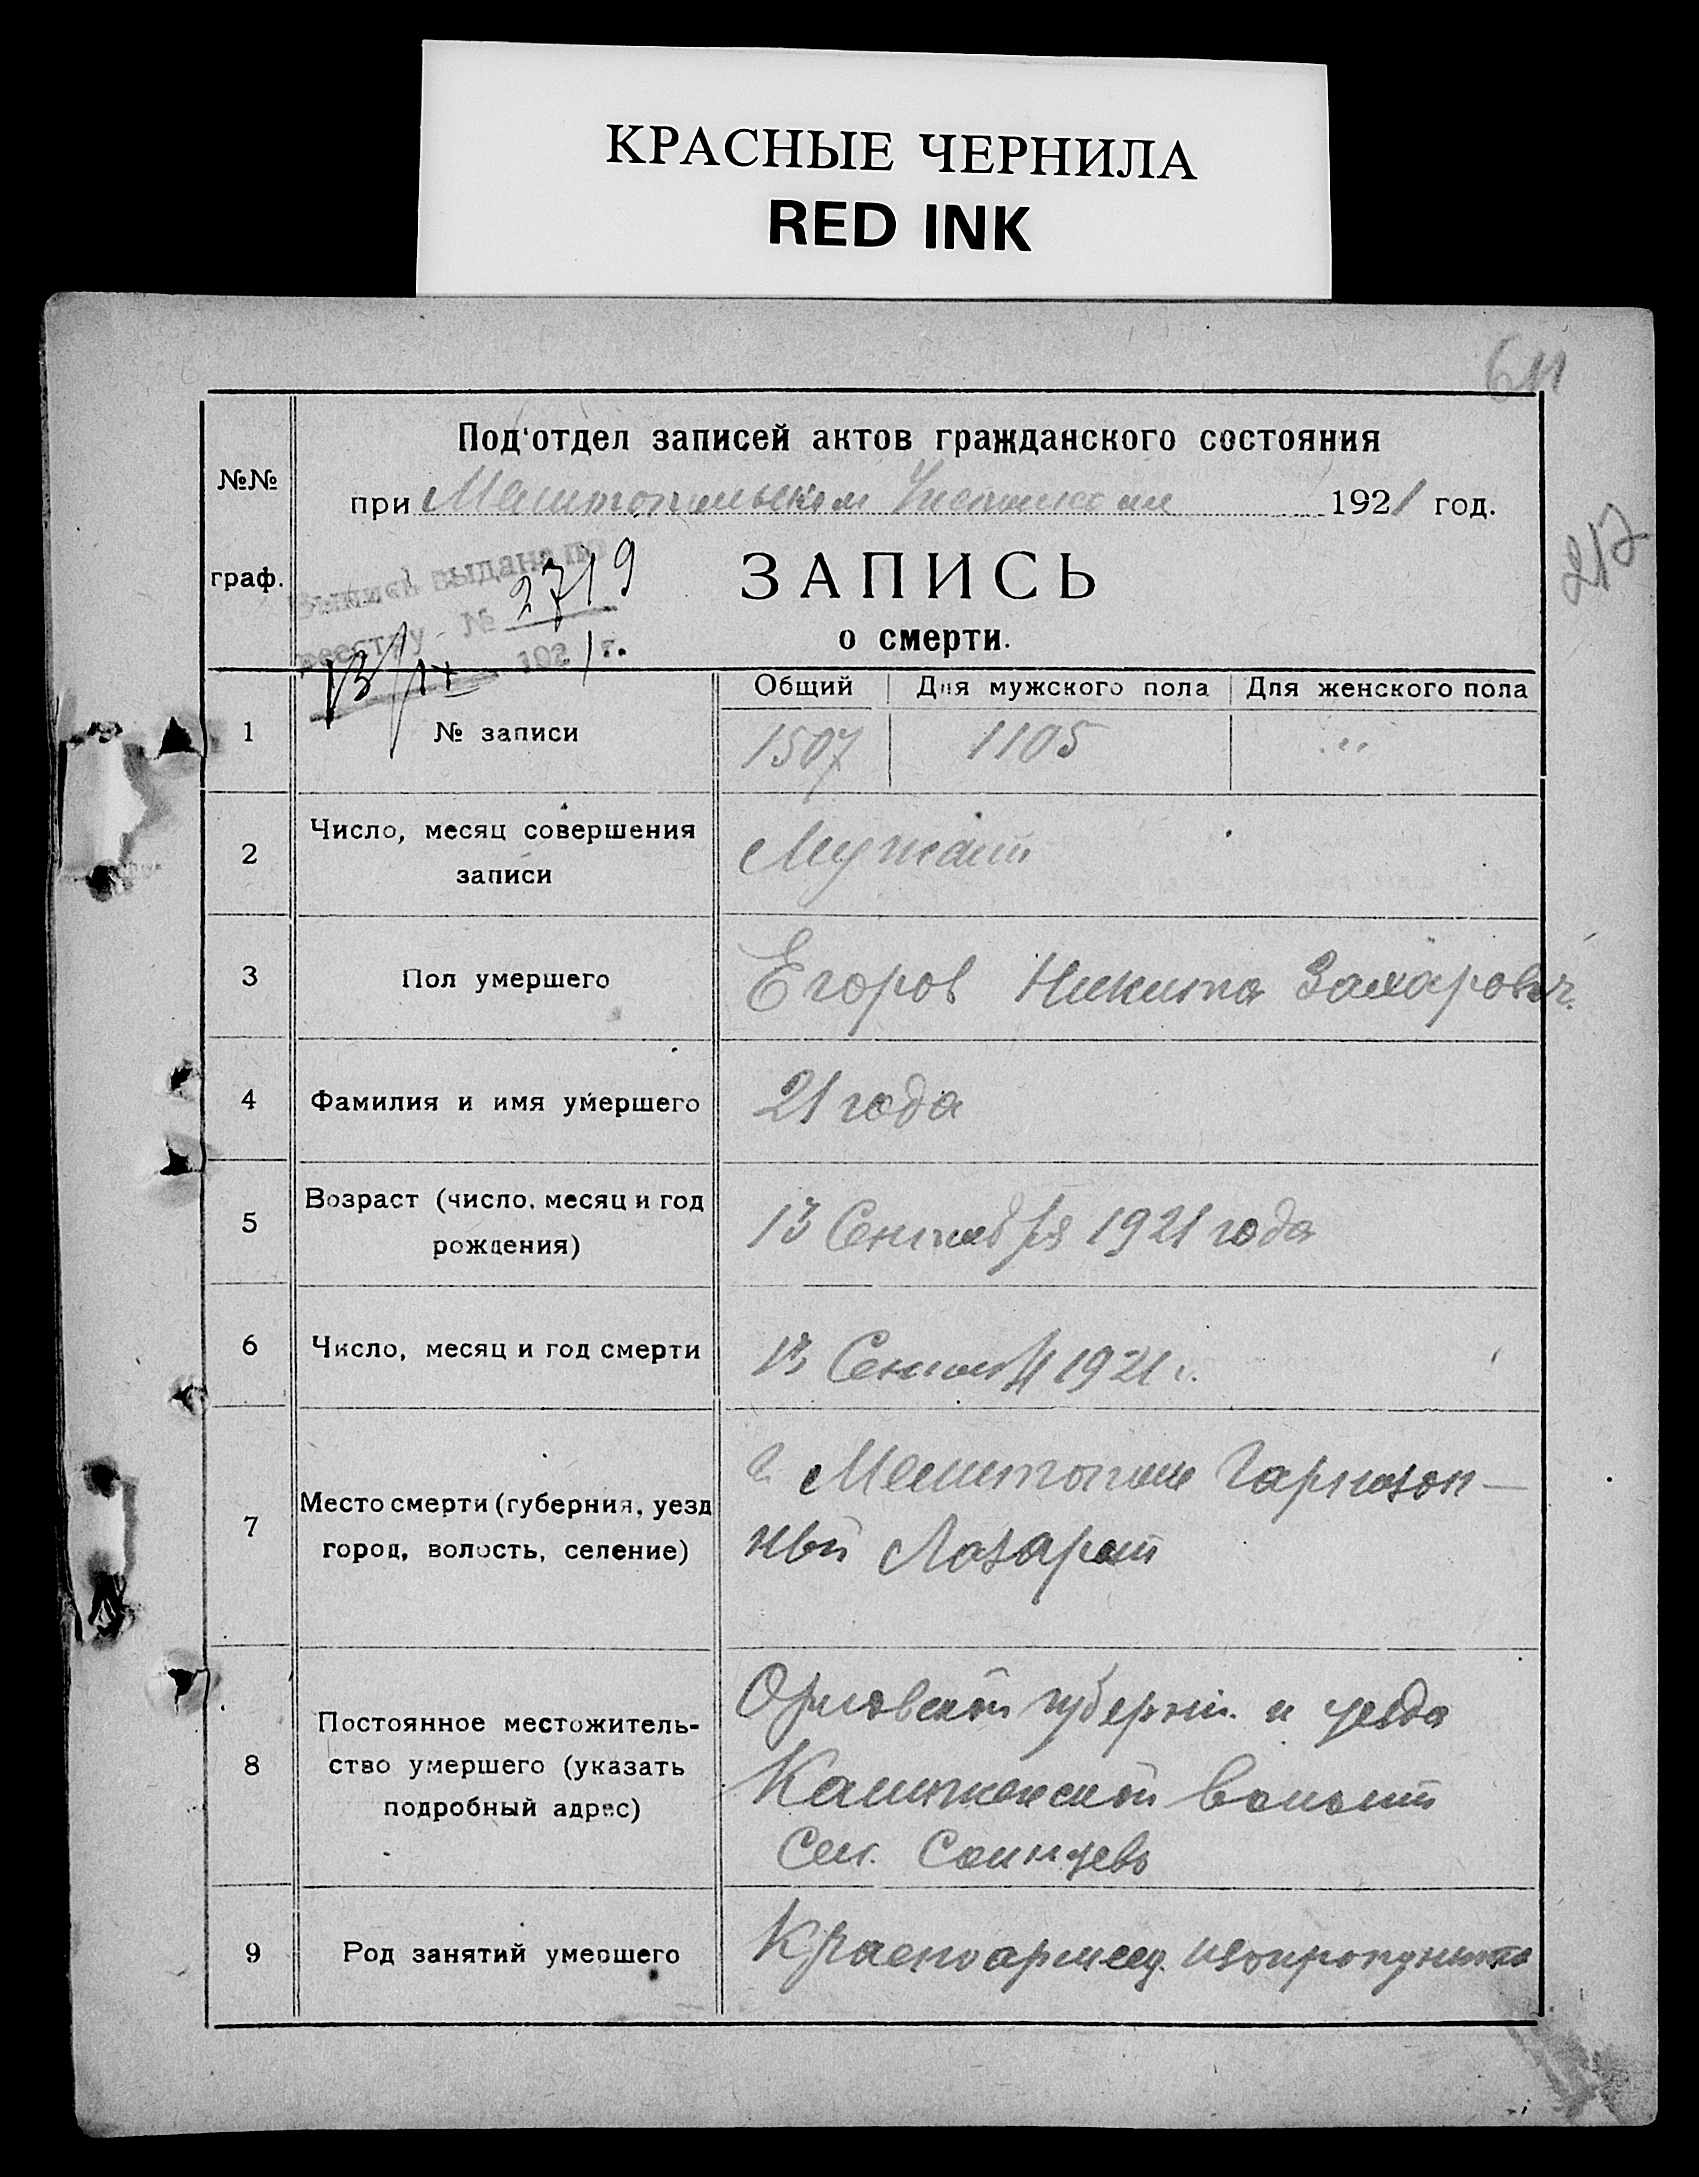 КРАСНЫЕ ЧЕРНИЛА
RED INK
611
Под'отдел записей актов гражданского состояния
№№
при Мелитопольском Уисполкоме 1921 год.
217
граф.
Выпись выдана по
реестру № 2719
13/IX 1921 г.
ЗАПИСЬ
о смерти.
Общий Для мужского пола Для женского пола
1 № записи 1507 1105 "
2 Число, месяц совершения
записи
Мужск
3 Пол умершего Егоров Никита Захарович
4 Фамилия и имя умершего 21 года
5 Возраст (число, месяц и год
рождения)
13 Сентября 1921 года
6 Число, месяц и год смерти 13 Сентяб 1921 г.
7 Место смерти (губерния, уезд
город, волость, селение)
г. Мелитополь Гарнизон-
ный Лазарет
8 Постоянное местожитель-
ство умершего (указать
подробный адрес)
Орловской губерни. и уезда
волости
Сел. Солнцево
9 Род занятий умершего Красноармеец